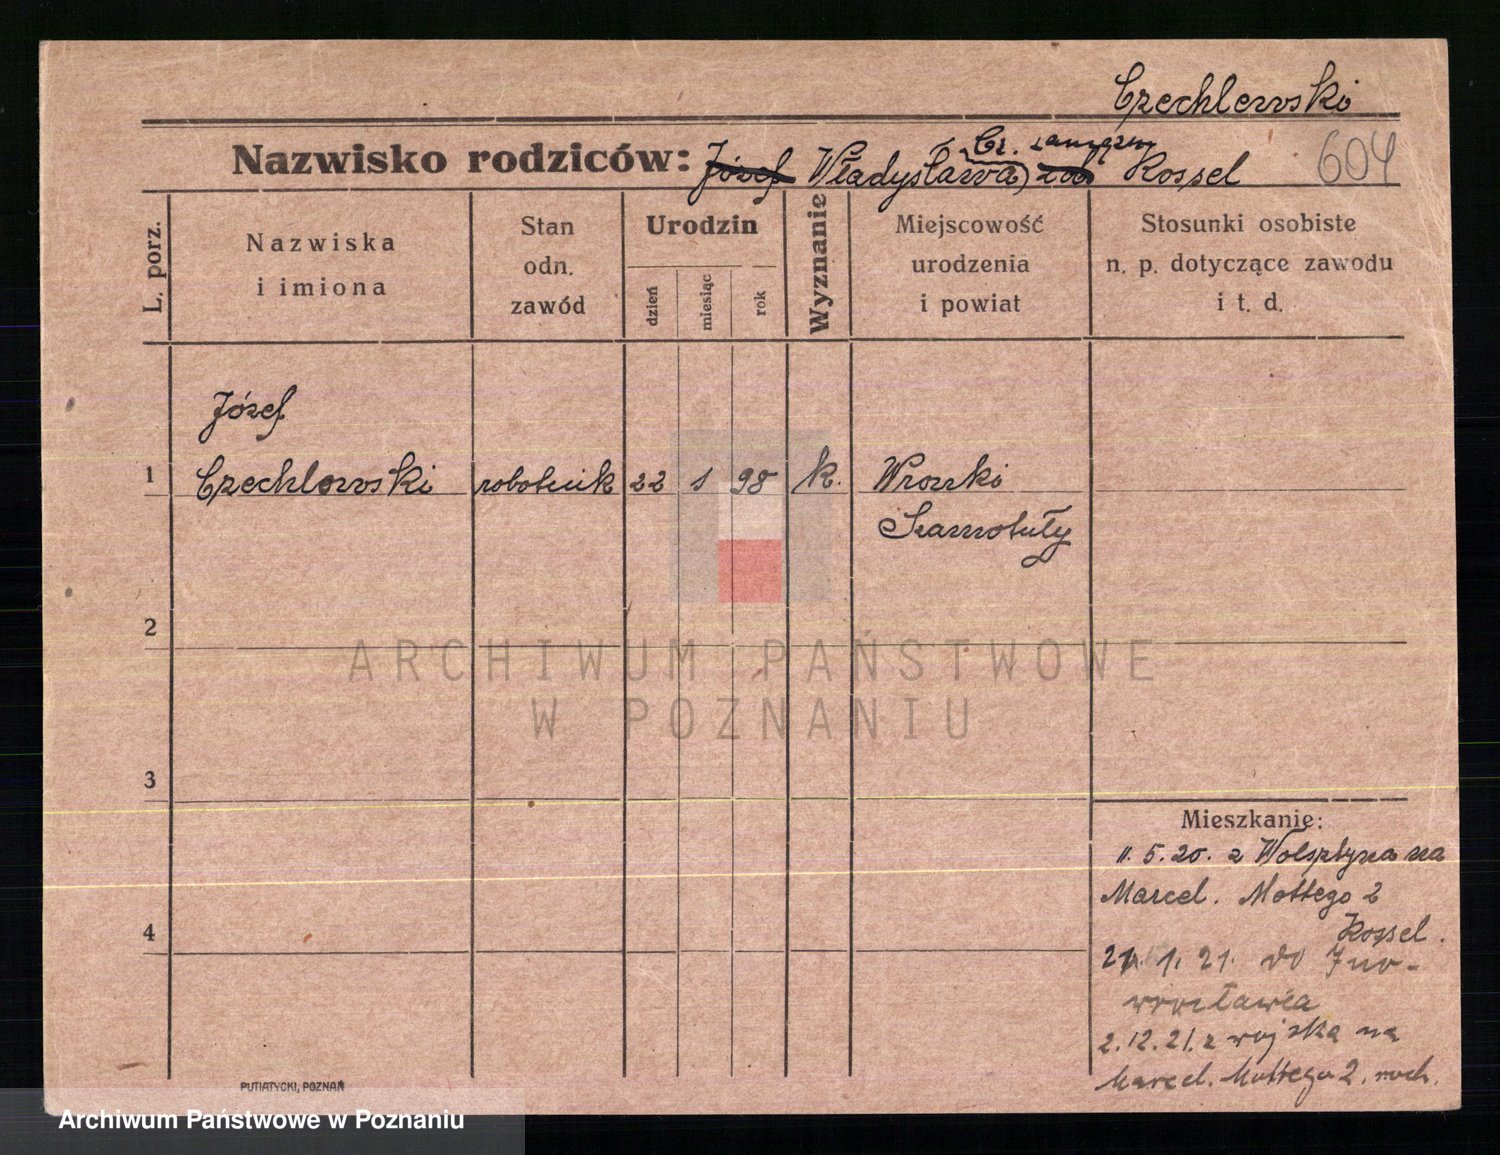 Czechlewski
Nazwisko rodziców: Józef Władysława Cz. zamężn. Rossel
604
L. porz.
Nazwiska
i imiona
Stan
odn.
zawód
Urodzin
dzień
miesiąc
rok
Wyznanie
Miejscowość
urodzenia
i powiat
Stosunki osobiste
n. p. dotyczące zawodu
i t. d.
Józef
1 Czechlewski robotnik 22 1 98 k. Wronki
Szamotuły
2
3
4
Mieszkanie:
11. 5. 20. z Wolsztyna na
Marcel. Mottego 2
Rossel.
1. 21. do Ino-
wrocławia
2. 12. 21. z wojska na
Marcel. Mottego 2.
PUTIATYCKI, POZNAŃ
ARCHIWUM PAŃSTWOWE
W POZNANIU
Archiwum Państwowe w Poznaniu